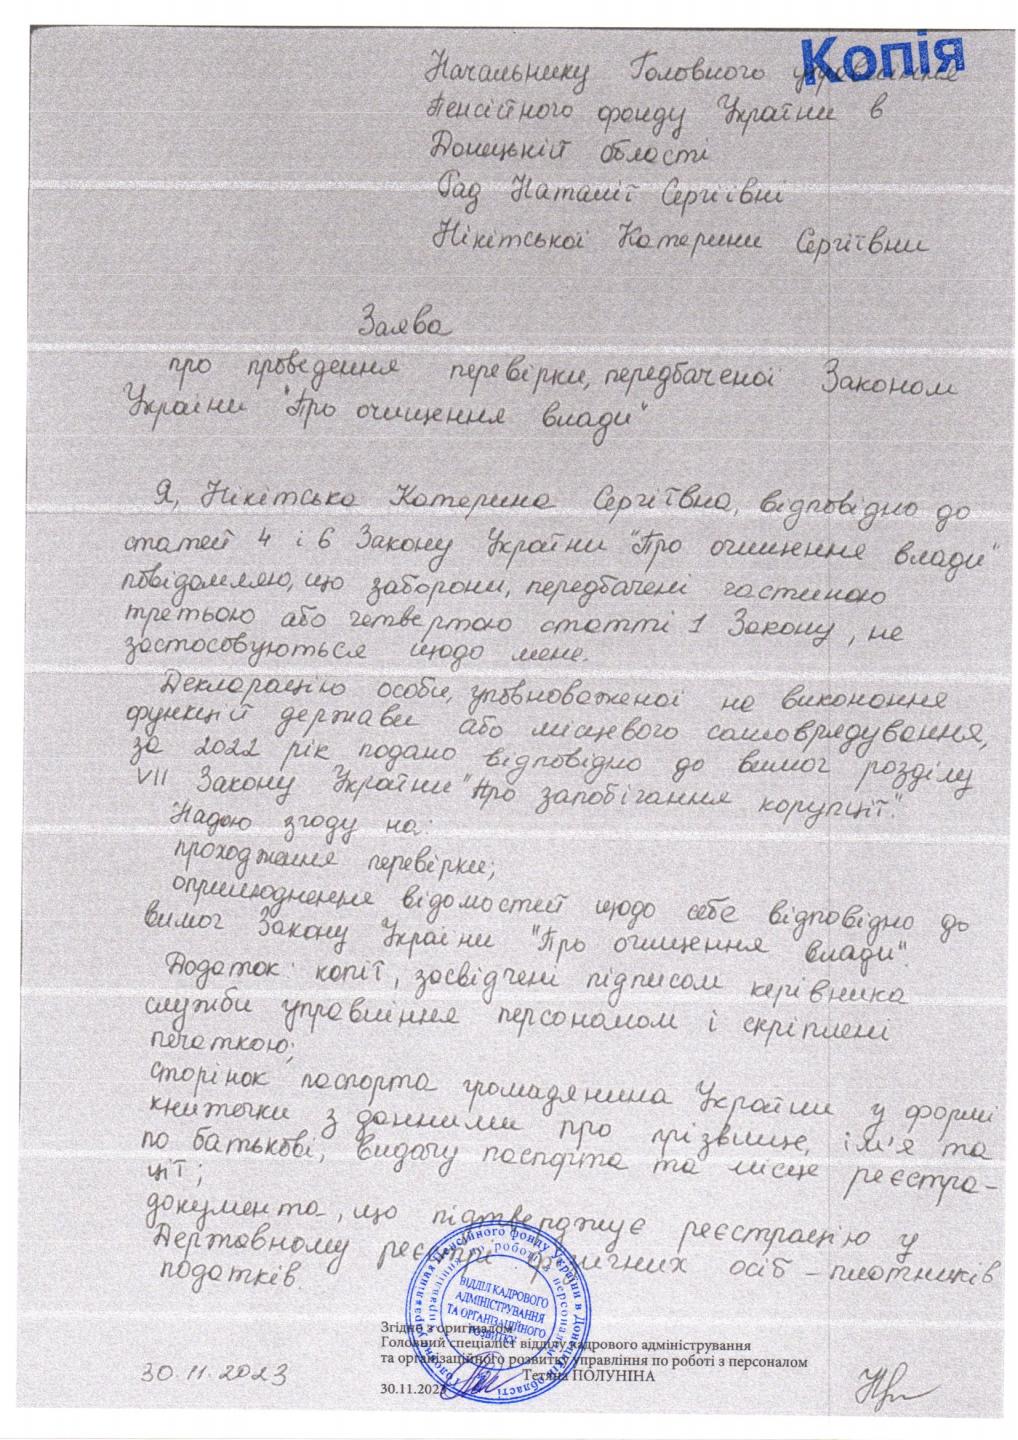 Копія
Начальнику Головного управління
Пенсійного фонду України в
Донецькій області
Рад Наталії Сергіївні
Нікітської Катерини Сергіївни
Заява
про проведення перевірки, передбаченої Законом
України "Про очищення влади"
Я, Нікітська Катерина Сергіївна, відповідно до
статей 4 і 6 Закону України "Про очищення влади"
повідомляю, що заборони, передбачені частиною
третьою або четвертою статті 1 Закону, не
застосовуються щодо мене.
Декларацію особи, уповноваженої на виконання
функцій держави або місцевого самоврядування,
за 2022 рік подано відповідно до вимог розділу
VII Закону України "Про запобігання корупції".
Надаю згоду на:
проходження перевірки;
оприлюднення відомостей щодо себе відповідно до
вимог Закону України "Про очищення влади".
Додаток: копії, засвідчені підписом керівника
служби управління персоналом і скріплені
печаткою;
сторінок паспорта громадянина України у формі
книжечки з данними про прізвище, ім'я та
по батькові, видачу паспорта та місце реєстра-
ції;
документа, що підтверджує реєстрацію у
Державному реєстрі фізичних осіб - платників
податків
Головне управління Пенсійного фонду України в Донецькій області
управління по роботі з персоналом
ВІДДІЛ КАДРОВОГО
АДМІНІСТРУВАННЯ
ТА ОРГАНІЗАЦІЙНОГО
РОЗВИТКУ
Згідно з оригіналом
Головний спеціаліст відділу кадрового адміністрування
та організаційного розвитку управління по роботі з персоналом
Тетяна ПОЛУНІНА
30.11.2023
30.11.2023